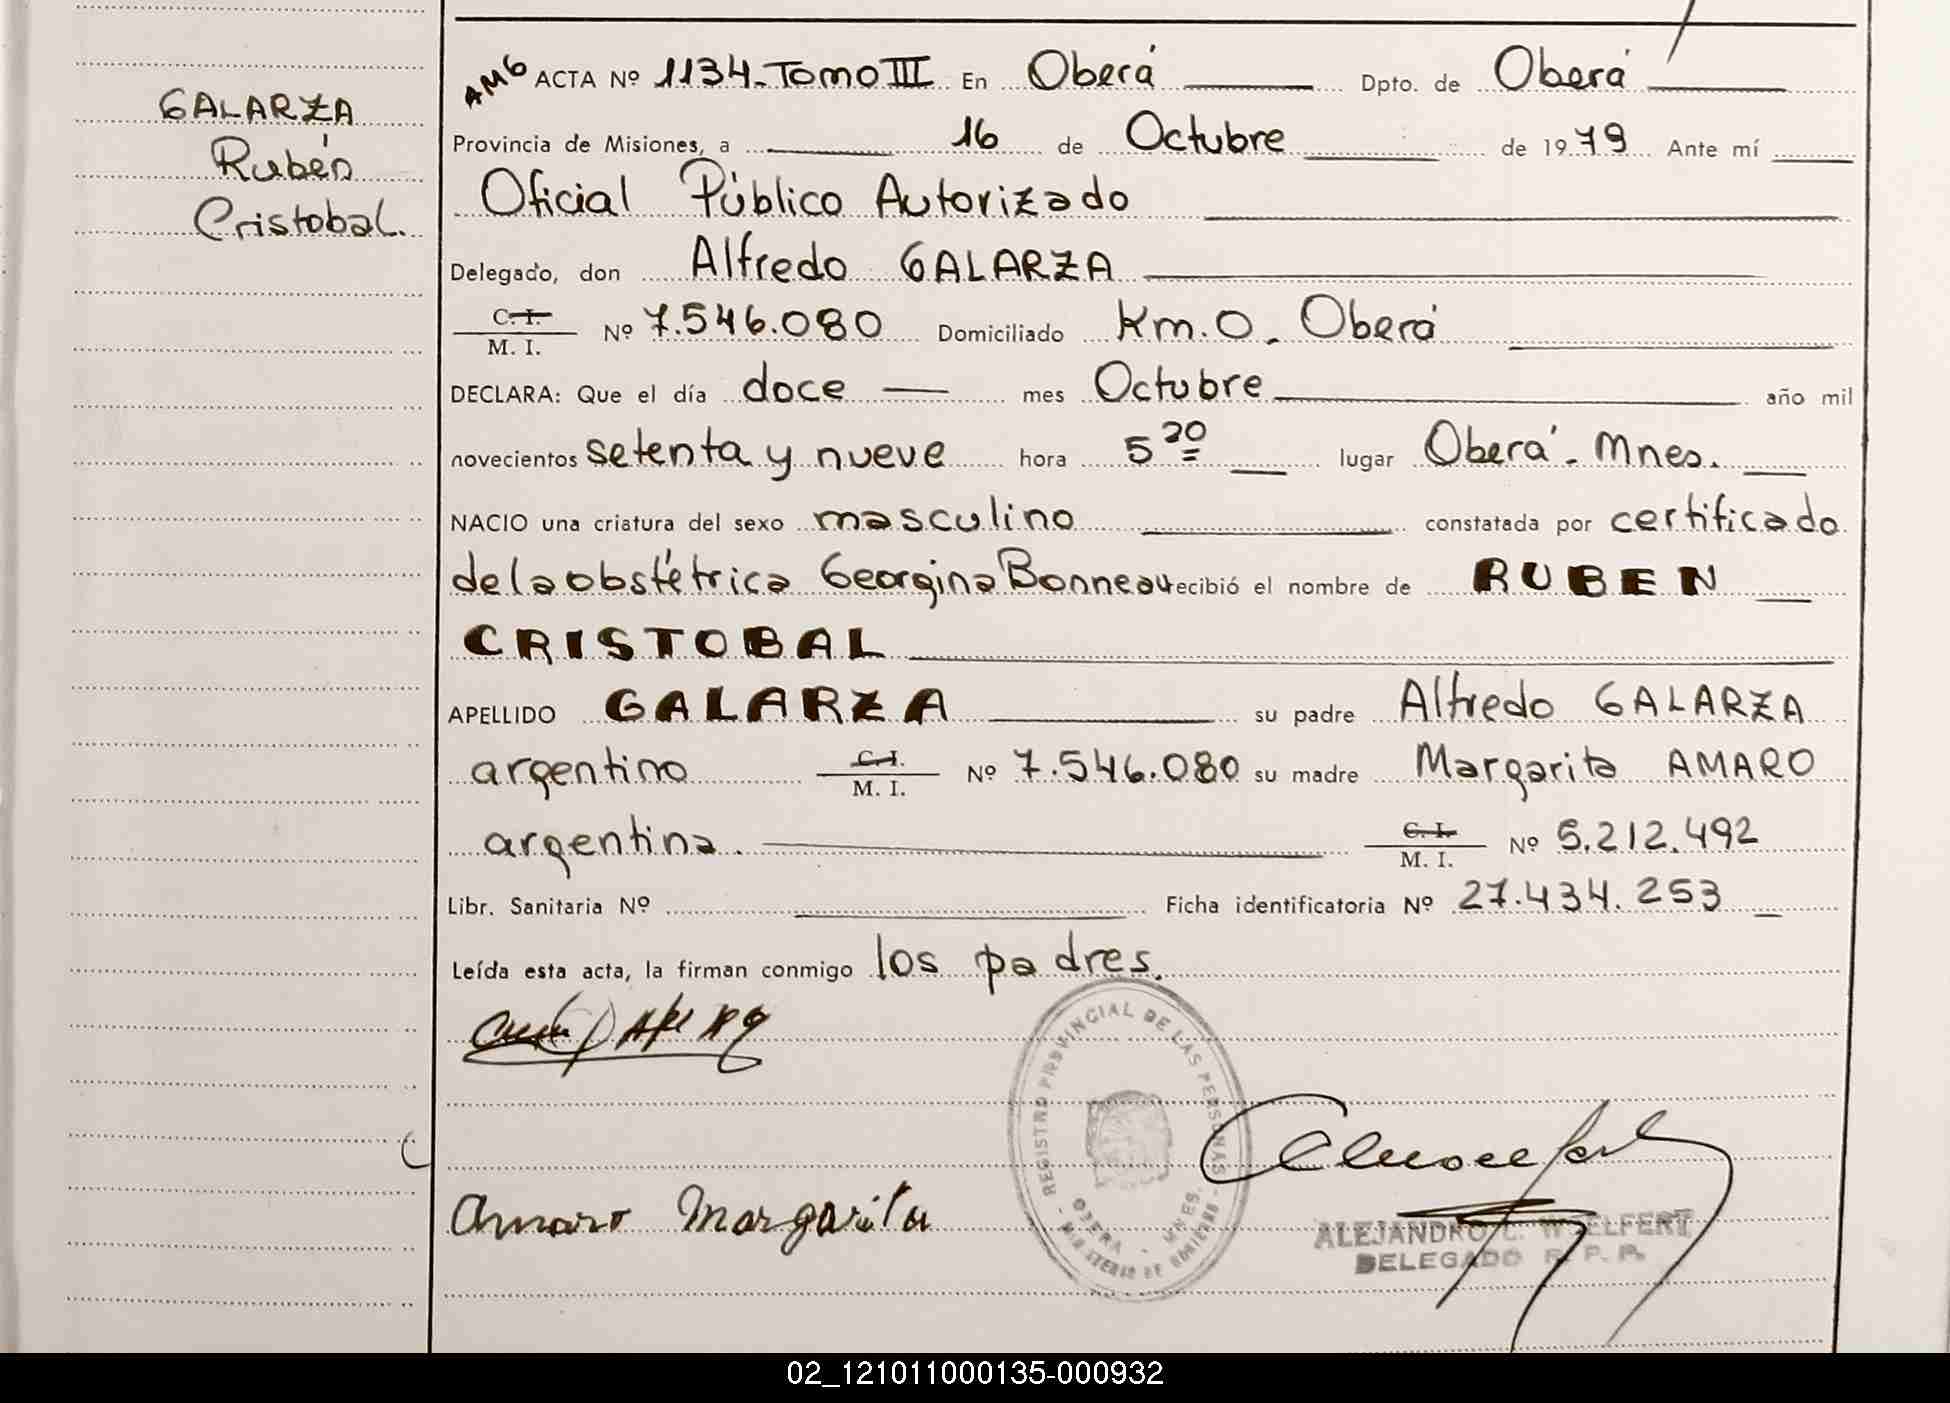 GALARZA
Rubén
Cristobal.
AMG ACTA Nº 1134-Tomo III En Oberá Dpto. de Oberá
Provincia de Misiones, a 16 de Octubre de 1979 Ante mí
Oficial Público Autorizado
Delegado, don Alfredo GALARZA
C. I.
M. I. Nº 7.546.080 Domiciliado Km. 0 - Oberá
DECLARA: Que el día doce mes Octubre año mil
novecientos setenta y nueve hora 5 20 lugar Oberá - Mnes.
NACIO una criatura del sexo masculino constatada por certificado
de la obstétrica Georgina Bonneau recibió el nombre de RUBEN
CRISTOBAL
APELLIDO GALARZA su padre Alfredo GALARZA
argentino C. I. M. I. Nº 7.546.080 su madre Margarita AMARO
argentina. C. I. M. I. Nº 5.212.492
Libr. Sanitaria Nº Ficha identificatoria Nº 27.434.253
Leída esta acta, la firman conmigo los padres.
REGISTRO PROVINCIAL DE LAS PERSONAS
OBERA - MNES.
- MINISTERIO DE GOBIERNO -
Amaro Margarita
ALEJANDRO C. WOELFERT
DELEGADO R. P. P.
02_121011000135-000932